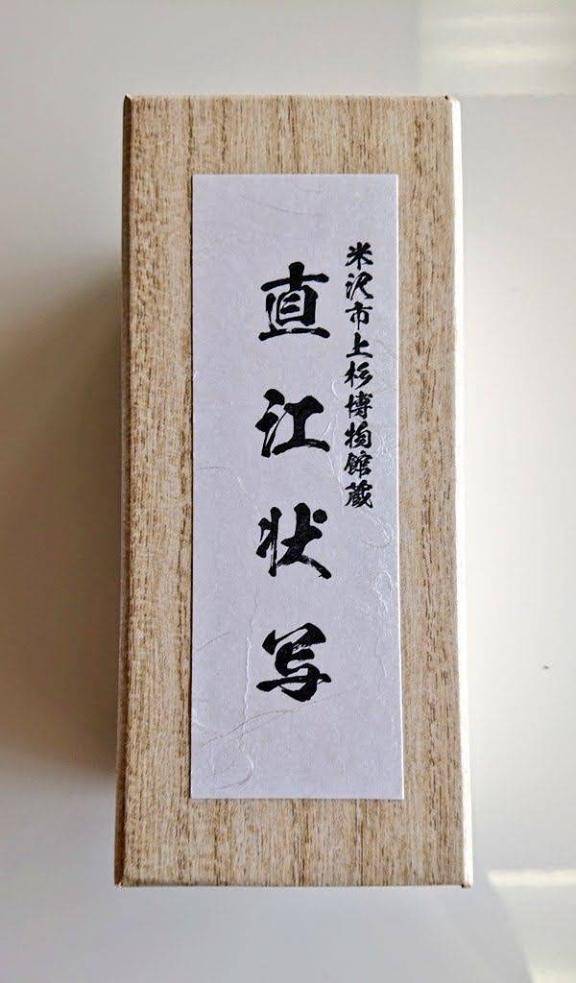 米沢市上杉博物館蔵
直江状写